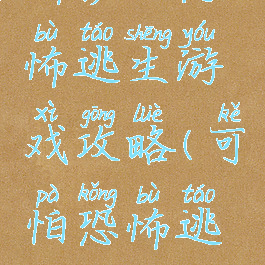 bù táo shēng yóu
怖逃生游
xì gōng lüè kě
戏攻略(可
pà kǒng bù táo
怕恐怖逃